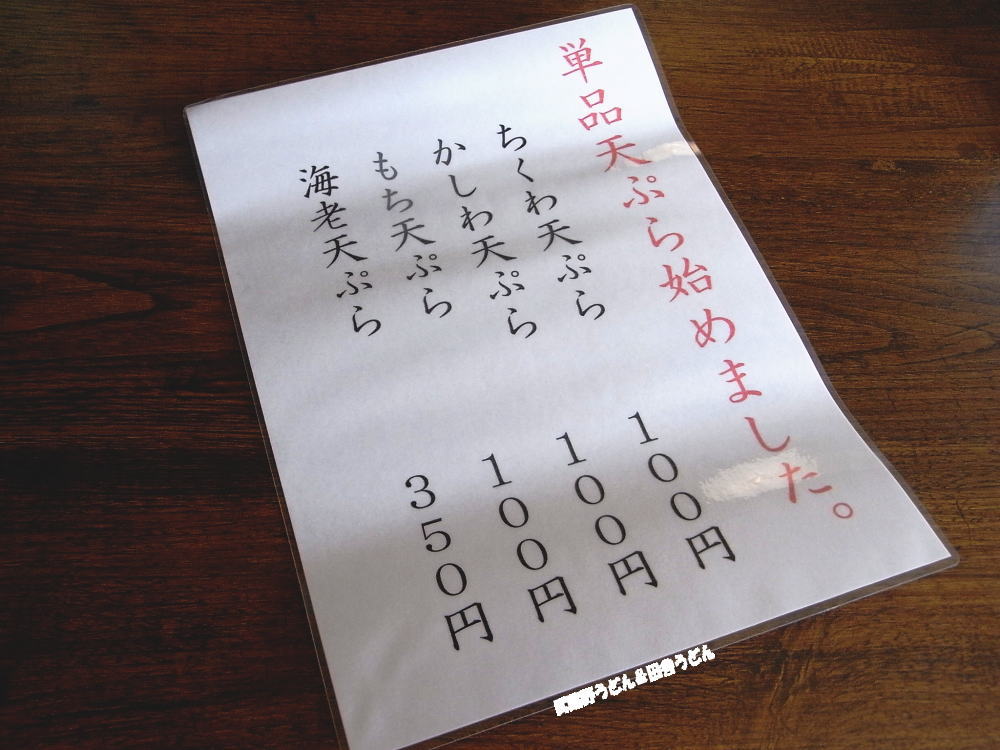 単品天ぷら始めました。
ちくわ天ぷら 100円
かしわ天ぷら 100円
もち天ぷら 100円
海老天ぷら 350円
武蔵野うどん&田舎うどん